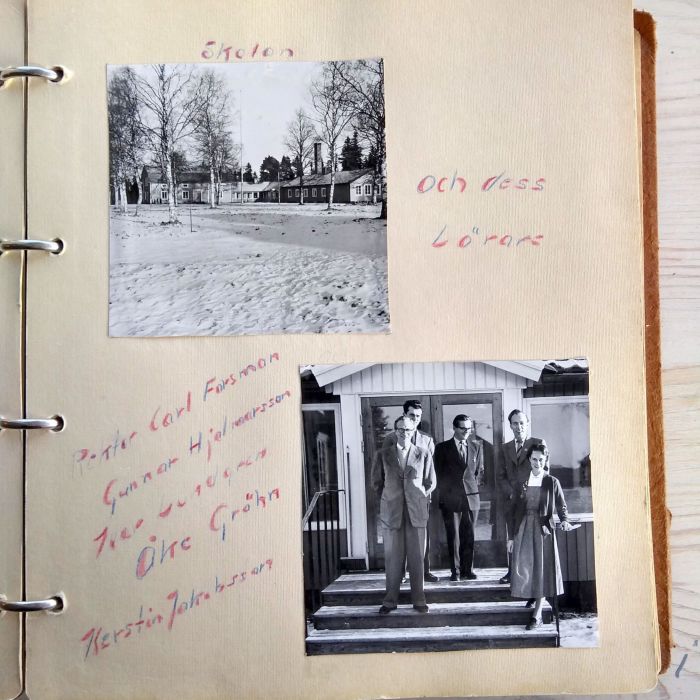 Skolan
Och dess
Lärare
Rektor Carl Forsman
Gunnar Hjalmarsson
Iver Lundgren
Åke Gröhn
Kerstin Jakobsson